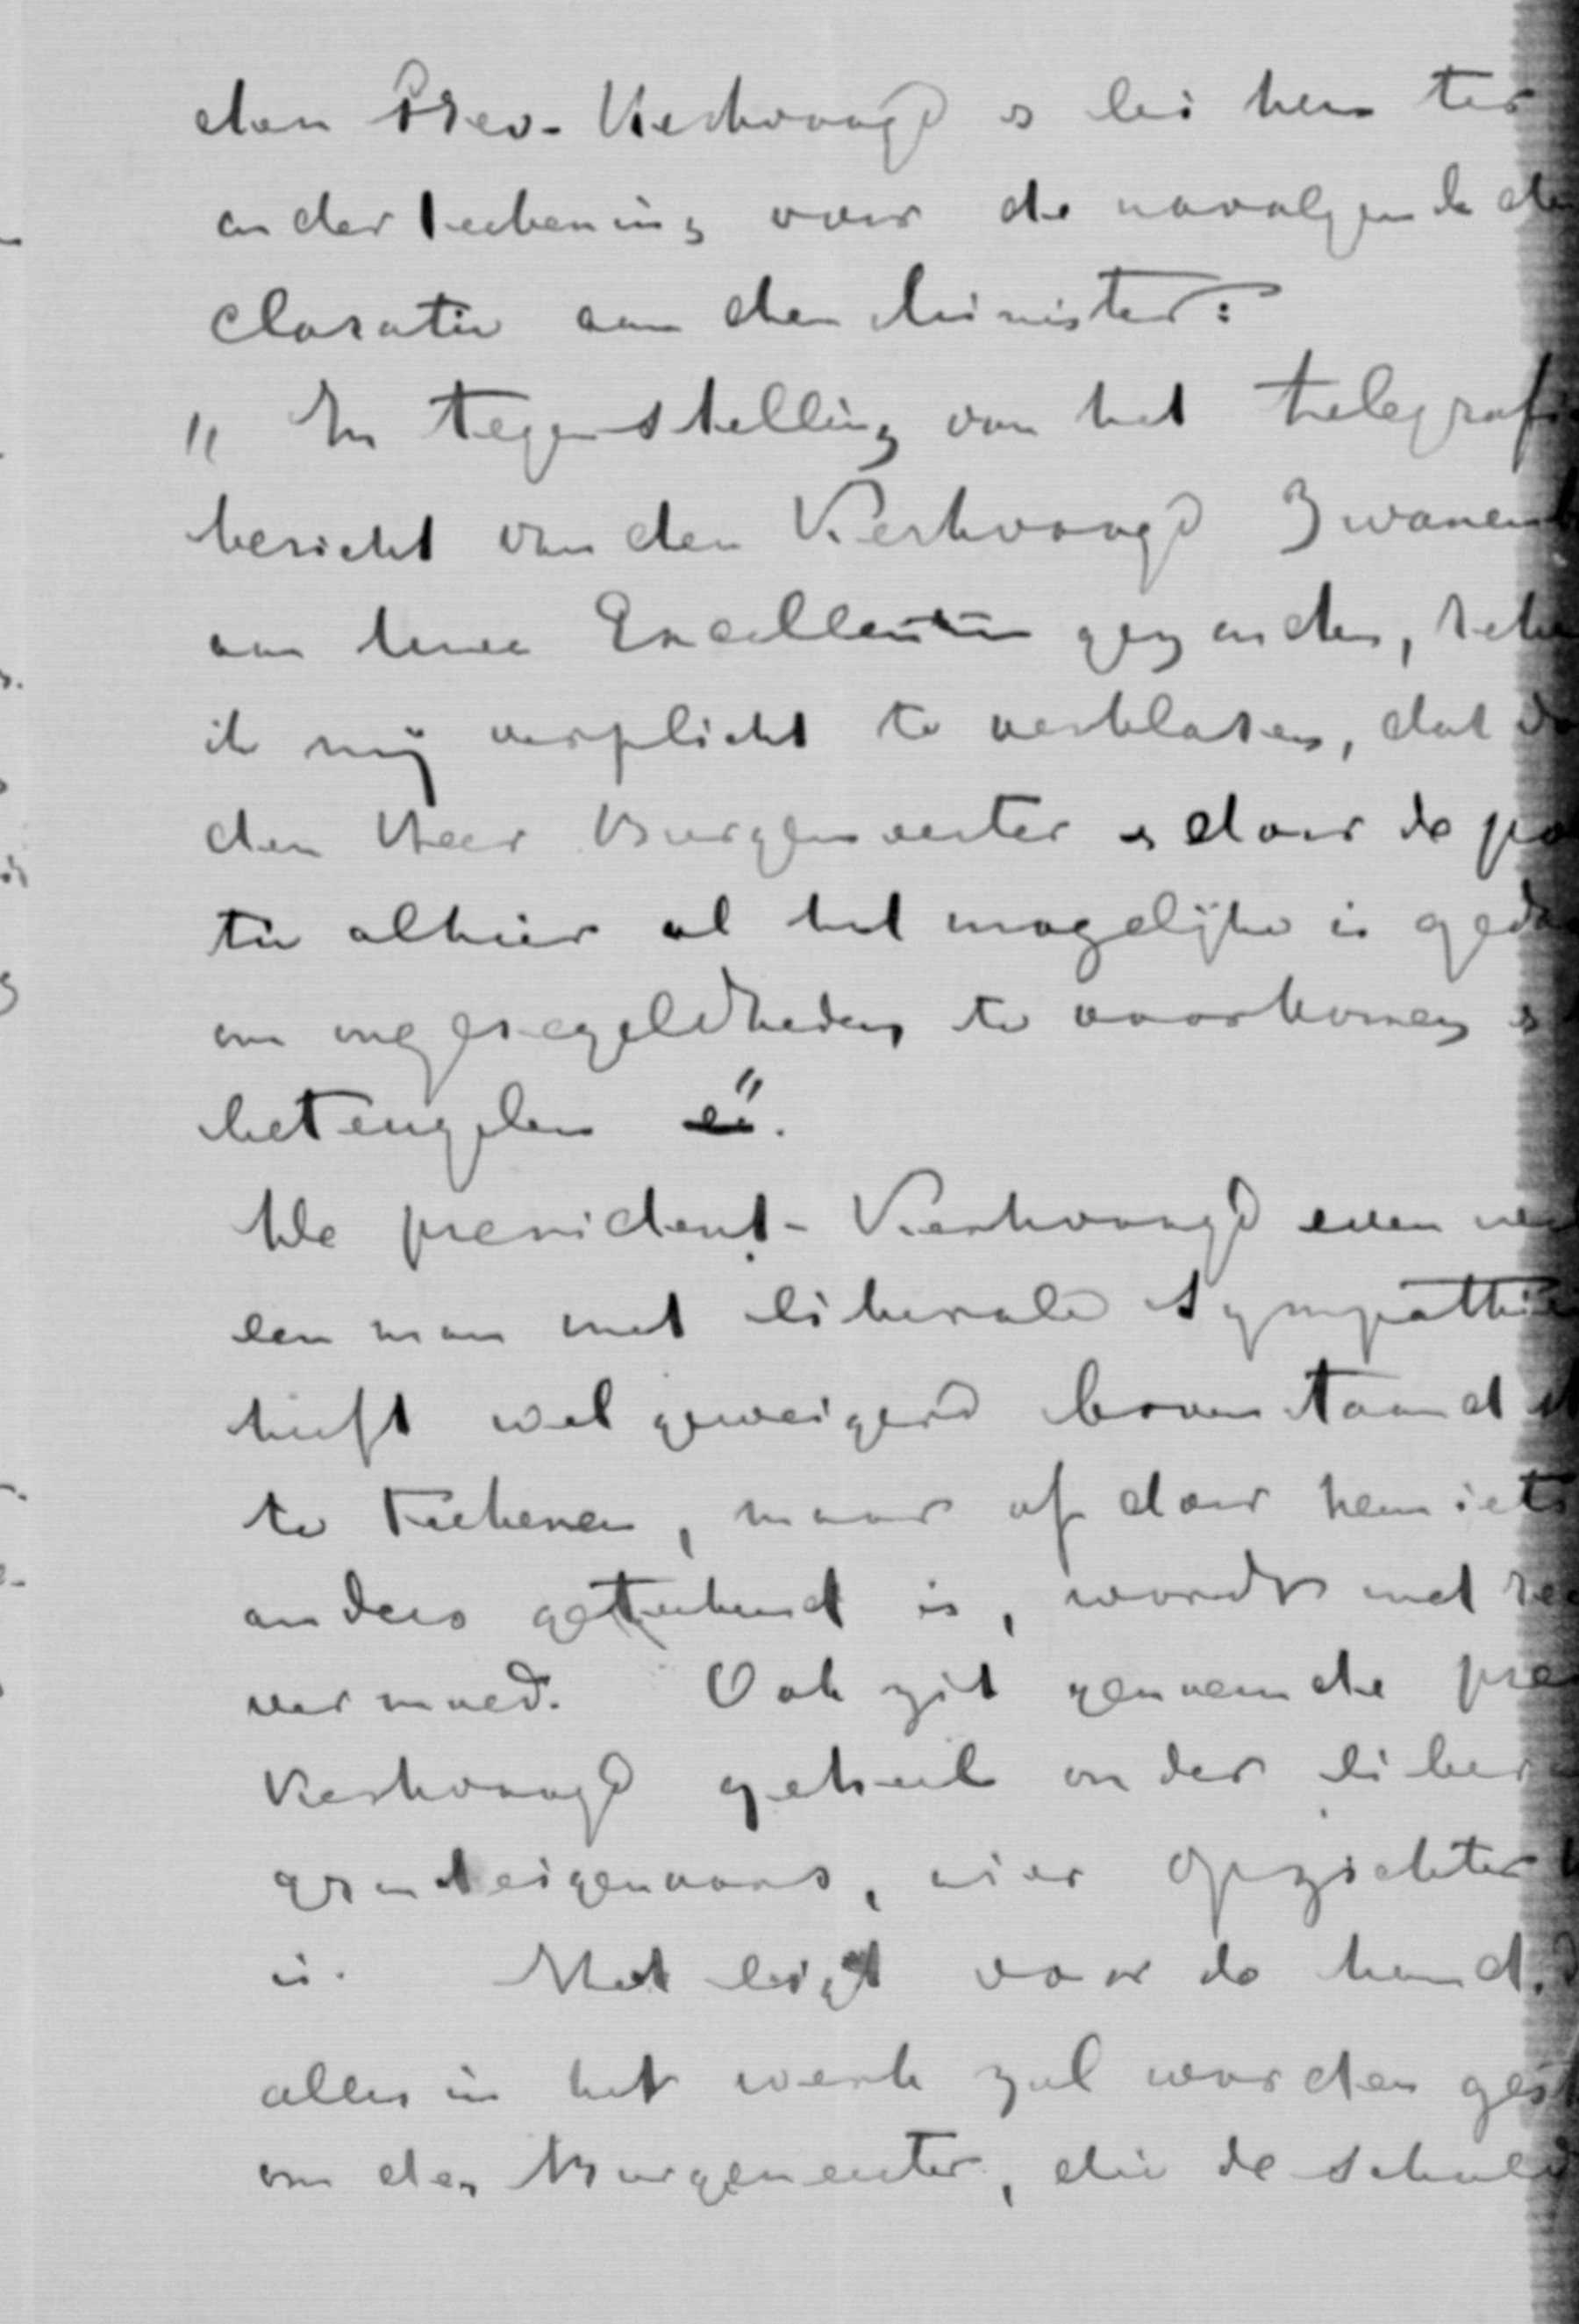 den Pres.- Kerkvoogd & lei hem ter
onderteekening voor de navolgende de
claratie aan den Minister:
„ In tegenstelling van het telegrafi
bericht van den Kerkvoogd Zwanenb
aan Uwe Excellentie gezonden, acht
ik mij verplicht te verklaren, dat do
den Heer Burgemeester & door de po
tie alhier al het mogelijke is geda
om ongeregeldheden te voorkomen &
beteugelen".
De president- Kerkvoogd even wel
een man met liberale sympathie
heeft wel geweigerd bovenstaand st
te teekenen, maar of door hem iets
anders geteekend is, wordt met re
vermoed. Ook zit genoemde pres
Kerkvoogd geheel onder libera
grondeigenaars, wier opzichter h
is. Het ligt voor de hand, d
alles in het werk zal worden gest
om den Burgemeester, die de schuld